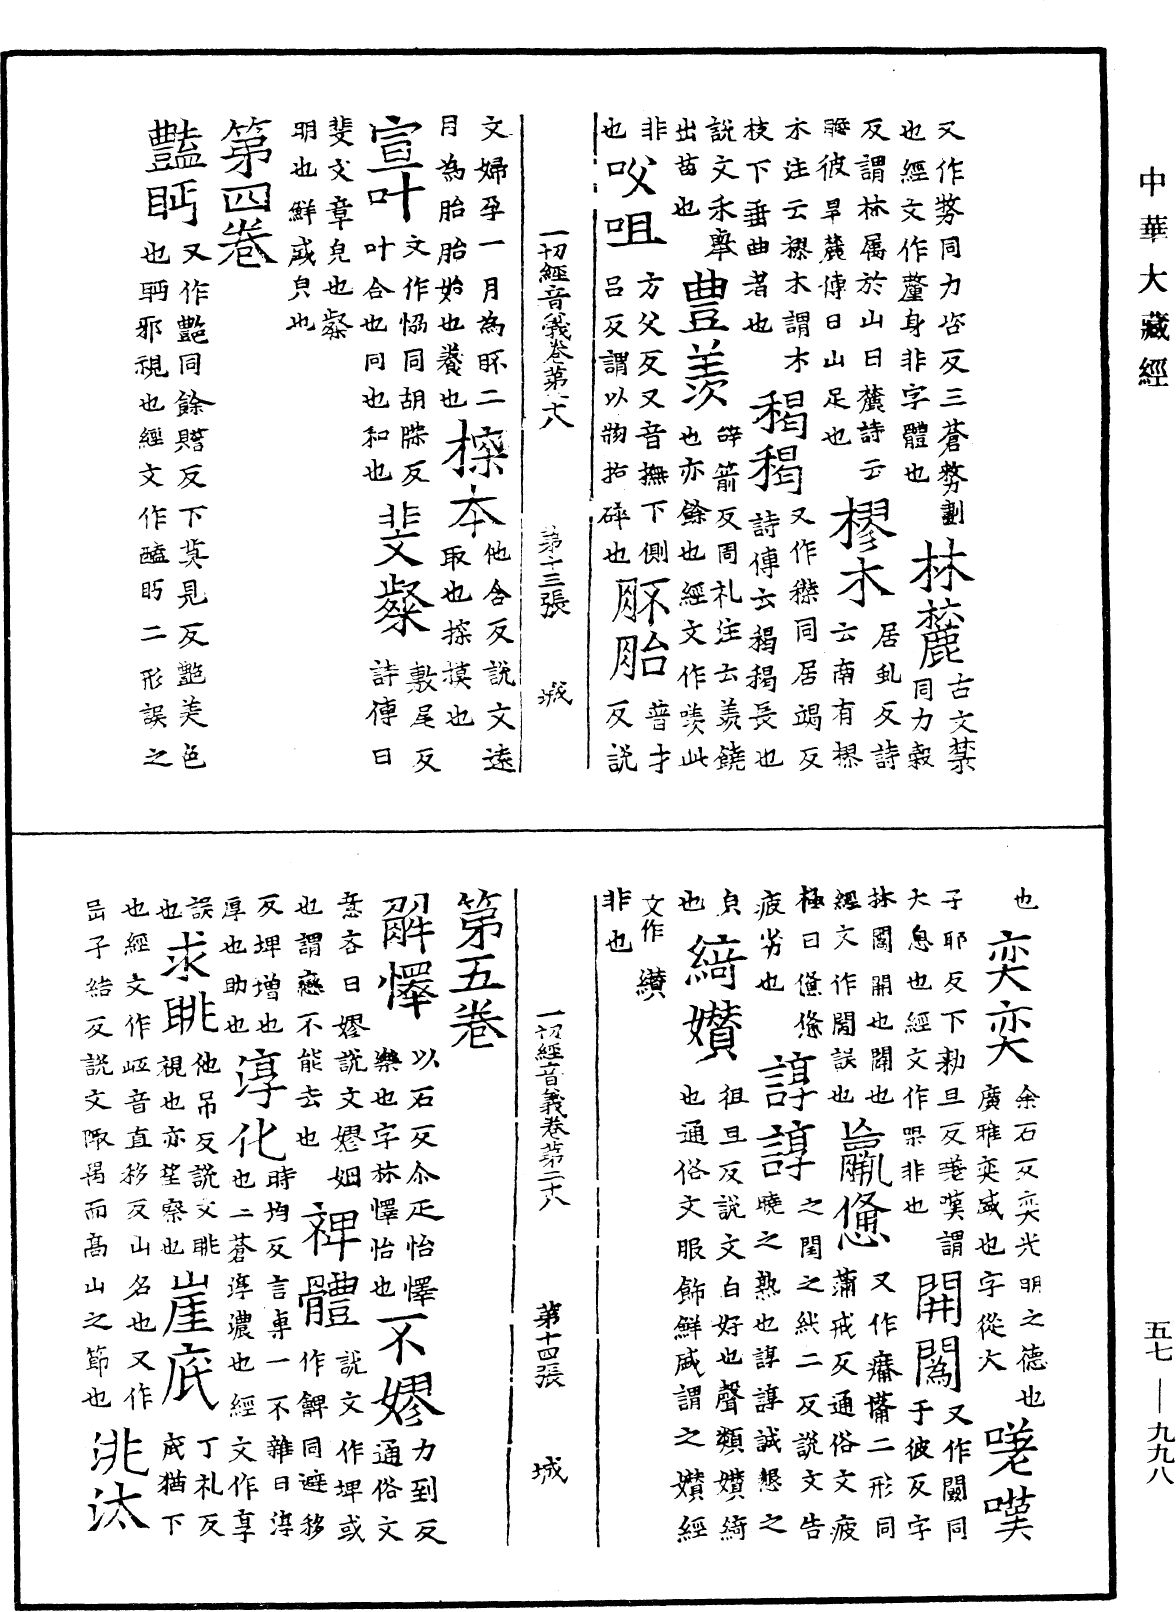 中華大藏經
又作剺同力咨反三蒼剺劃
也經文作釐身非字體也 林麓 古文禁同力穀
反謂林属於山曰麓詩云
瞻彼旱麓傳曰山足也 樛木 居虬反詩云南有樛
木注云樛木謂木
枝下垂曲者也 稬稬 又作穕同居竭反詩傳云稬稬長也
說文禾舉
出苗也 豊羡 辝箭反周礼注云羡饒也亦餘也經文作羨此
非
也 㕮咀 方父反又音撫下側呂反謂以物拍碎也 胚胎 普才反說
一切經音義卷第二十八 第十三張 城
文婦孕一月為胚二
月為胎胎始也養也 探本 他含反說文遠取也探摸也
宣叶 文作恊同胡牒反叶合也同也和也 斐粲 敷尾反詩傳曰
斐文章皃也粲
明也鮮盛皃也
第四卷
豔眄 又作艷同餘贍反下莫見反艷美色也眄邪視也經文作䤁眄二形誤之
也 奕奕 余石反奕光明之德也廣雅奕盛也字從大 嗟嘆
子耶反下勑旦反嗟嘆謂
大息也經文作㗁非也 開闊 又作闢同于彼反字
林闊開也闊也
經文作閱誤也 羸憊 又作癟㿑二形同蒲戒反通俗文疲
極曰憊憊
疲劣也 諄諄 之閏之純二反說文告曉之熟也諄諄誠懇之
皃
也 綺孉 徂旦反說文白好也聲類孉綺也通俗文服飾鮮盛謂之孉經
文作讚
非也
一切經音義卷第二十八 第十四張 城
第五卷
解懌 以石反尒疋怡懌樂也字林懌怡也 不嫪 力到反通俗文
意吝曰嫪說文嫪姻
也謂戀不能去也 裨體 說文作埤或作䫌同避移
反埤增也
厚也助也 淳化 時均反言專一不雜曰淳也二蒼淳濃也經文作享
誤
也 求眺 他吊反說文眺視也亦望察也 崖底 丁礼反底猶下
也經文作岻音直移反山名也又作
㠱子結反說文陬㠱而高山之節也 洮汰
五七—九九八